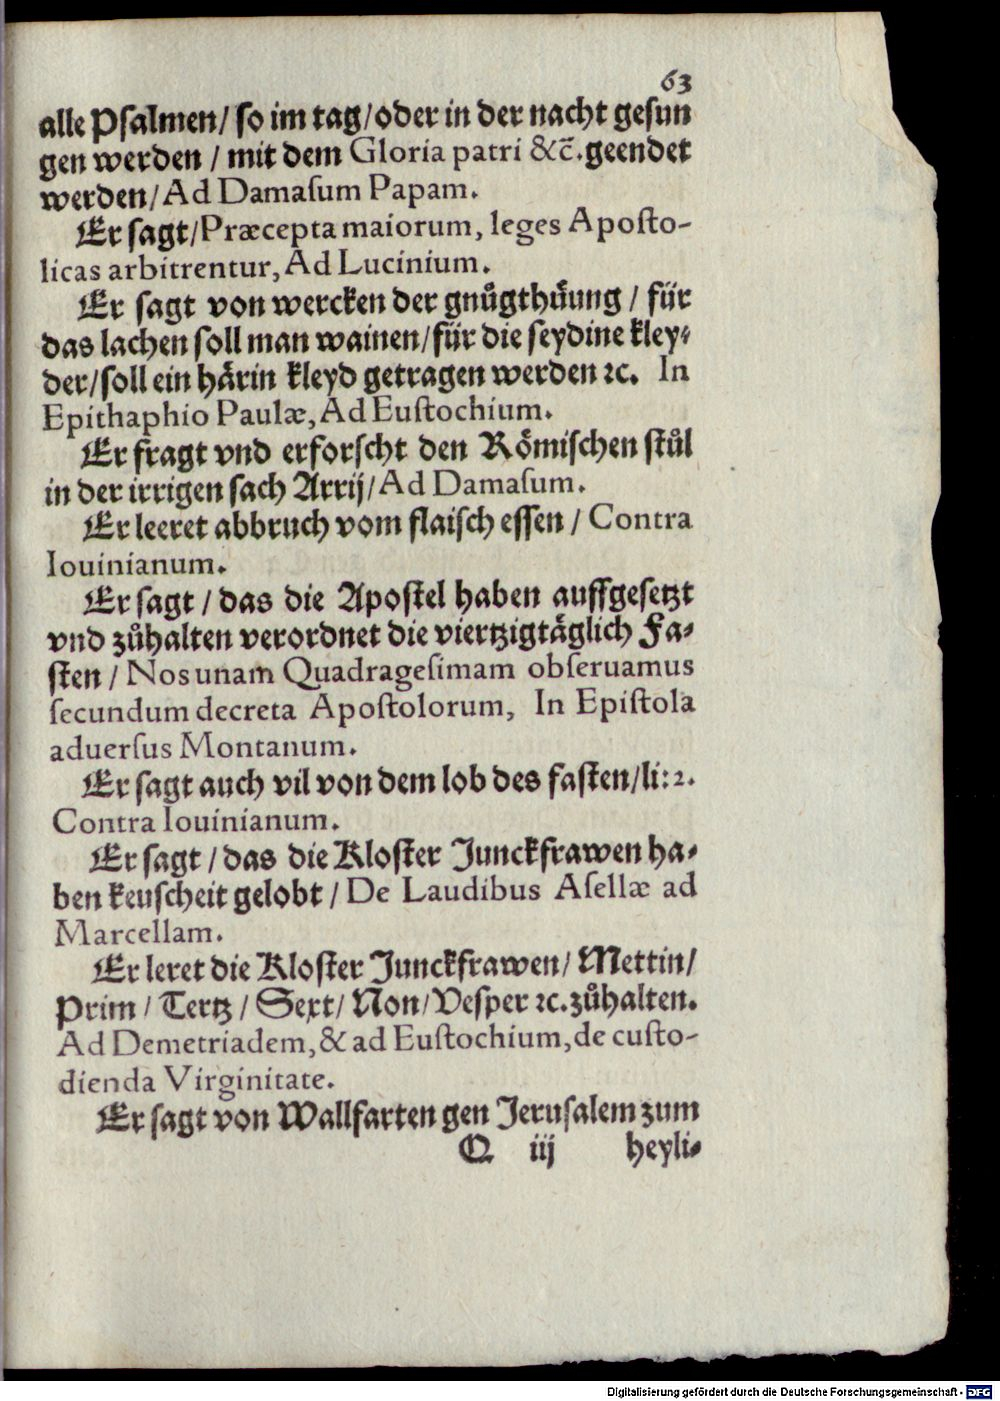 63
alle Psalmen/ so im tag/oder in der nacht gesun
gen werden / mit dem Gloria patri &c̄.geendet
werden/Ad Damaſum Papam.
Er sagt/Præcepta maiorum, leges Apoſto-
licas arbitrentur, Ad Lucinium.
Er sagt von wercken der gnůgthůung / für
das lachen soll man wainen/für die seydine kley-
der/soll ein härin kleyd getragen werden ꝛc. In
Epithaphio Paulæ, Ad Euſtochium.
Er fragt vnd erforscht den Römischen stůl
in der irrigen sach Arrij/Ad Damaſum.
Er leeret abbruch vom flaisch essen / Contra
Iouinianum.
Er sagt / das die Apostel haben auffgesetzt
vnd zůhalten verordnet die viertzigtäglich Fa-
sten / Nos unam Quadrageſimam obſeruamus
ſecundum decreta Apoſtolorum, In Epiſtola
aduerſus Montanum.
Er sagt auch vil von dem lob des fasten/li:2.
Contra Iouinianum.
Er sagt / das die Kloster Junckfrawen ha-
ben keuscheit gelobt / De Laudibus Aſellæ ad
Marcellam.
Er leret die Kloster Junckfrawen/ Mettin/
Prim / Tertz / Sext/ Non/Vesper ꝛc.zůhalten.
Ad Demetriadem,& ad Euſtochium,de cuſto-
dienda Virginitate.
Er sagt von Wallfarten gen Jerusalem zum
Q iij heyli-
Digitalisierung gefördert durch die Deutsche Forschungsgemeinschaft - DFG